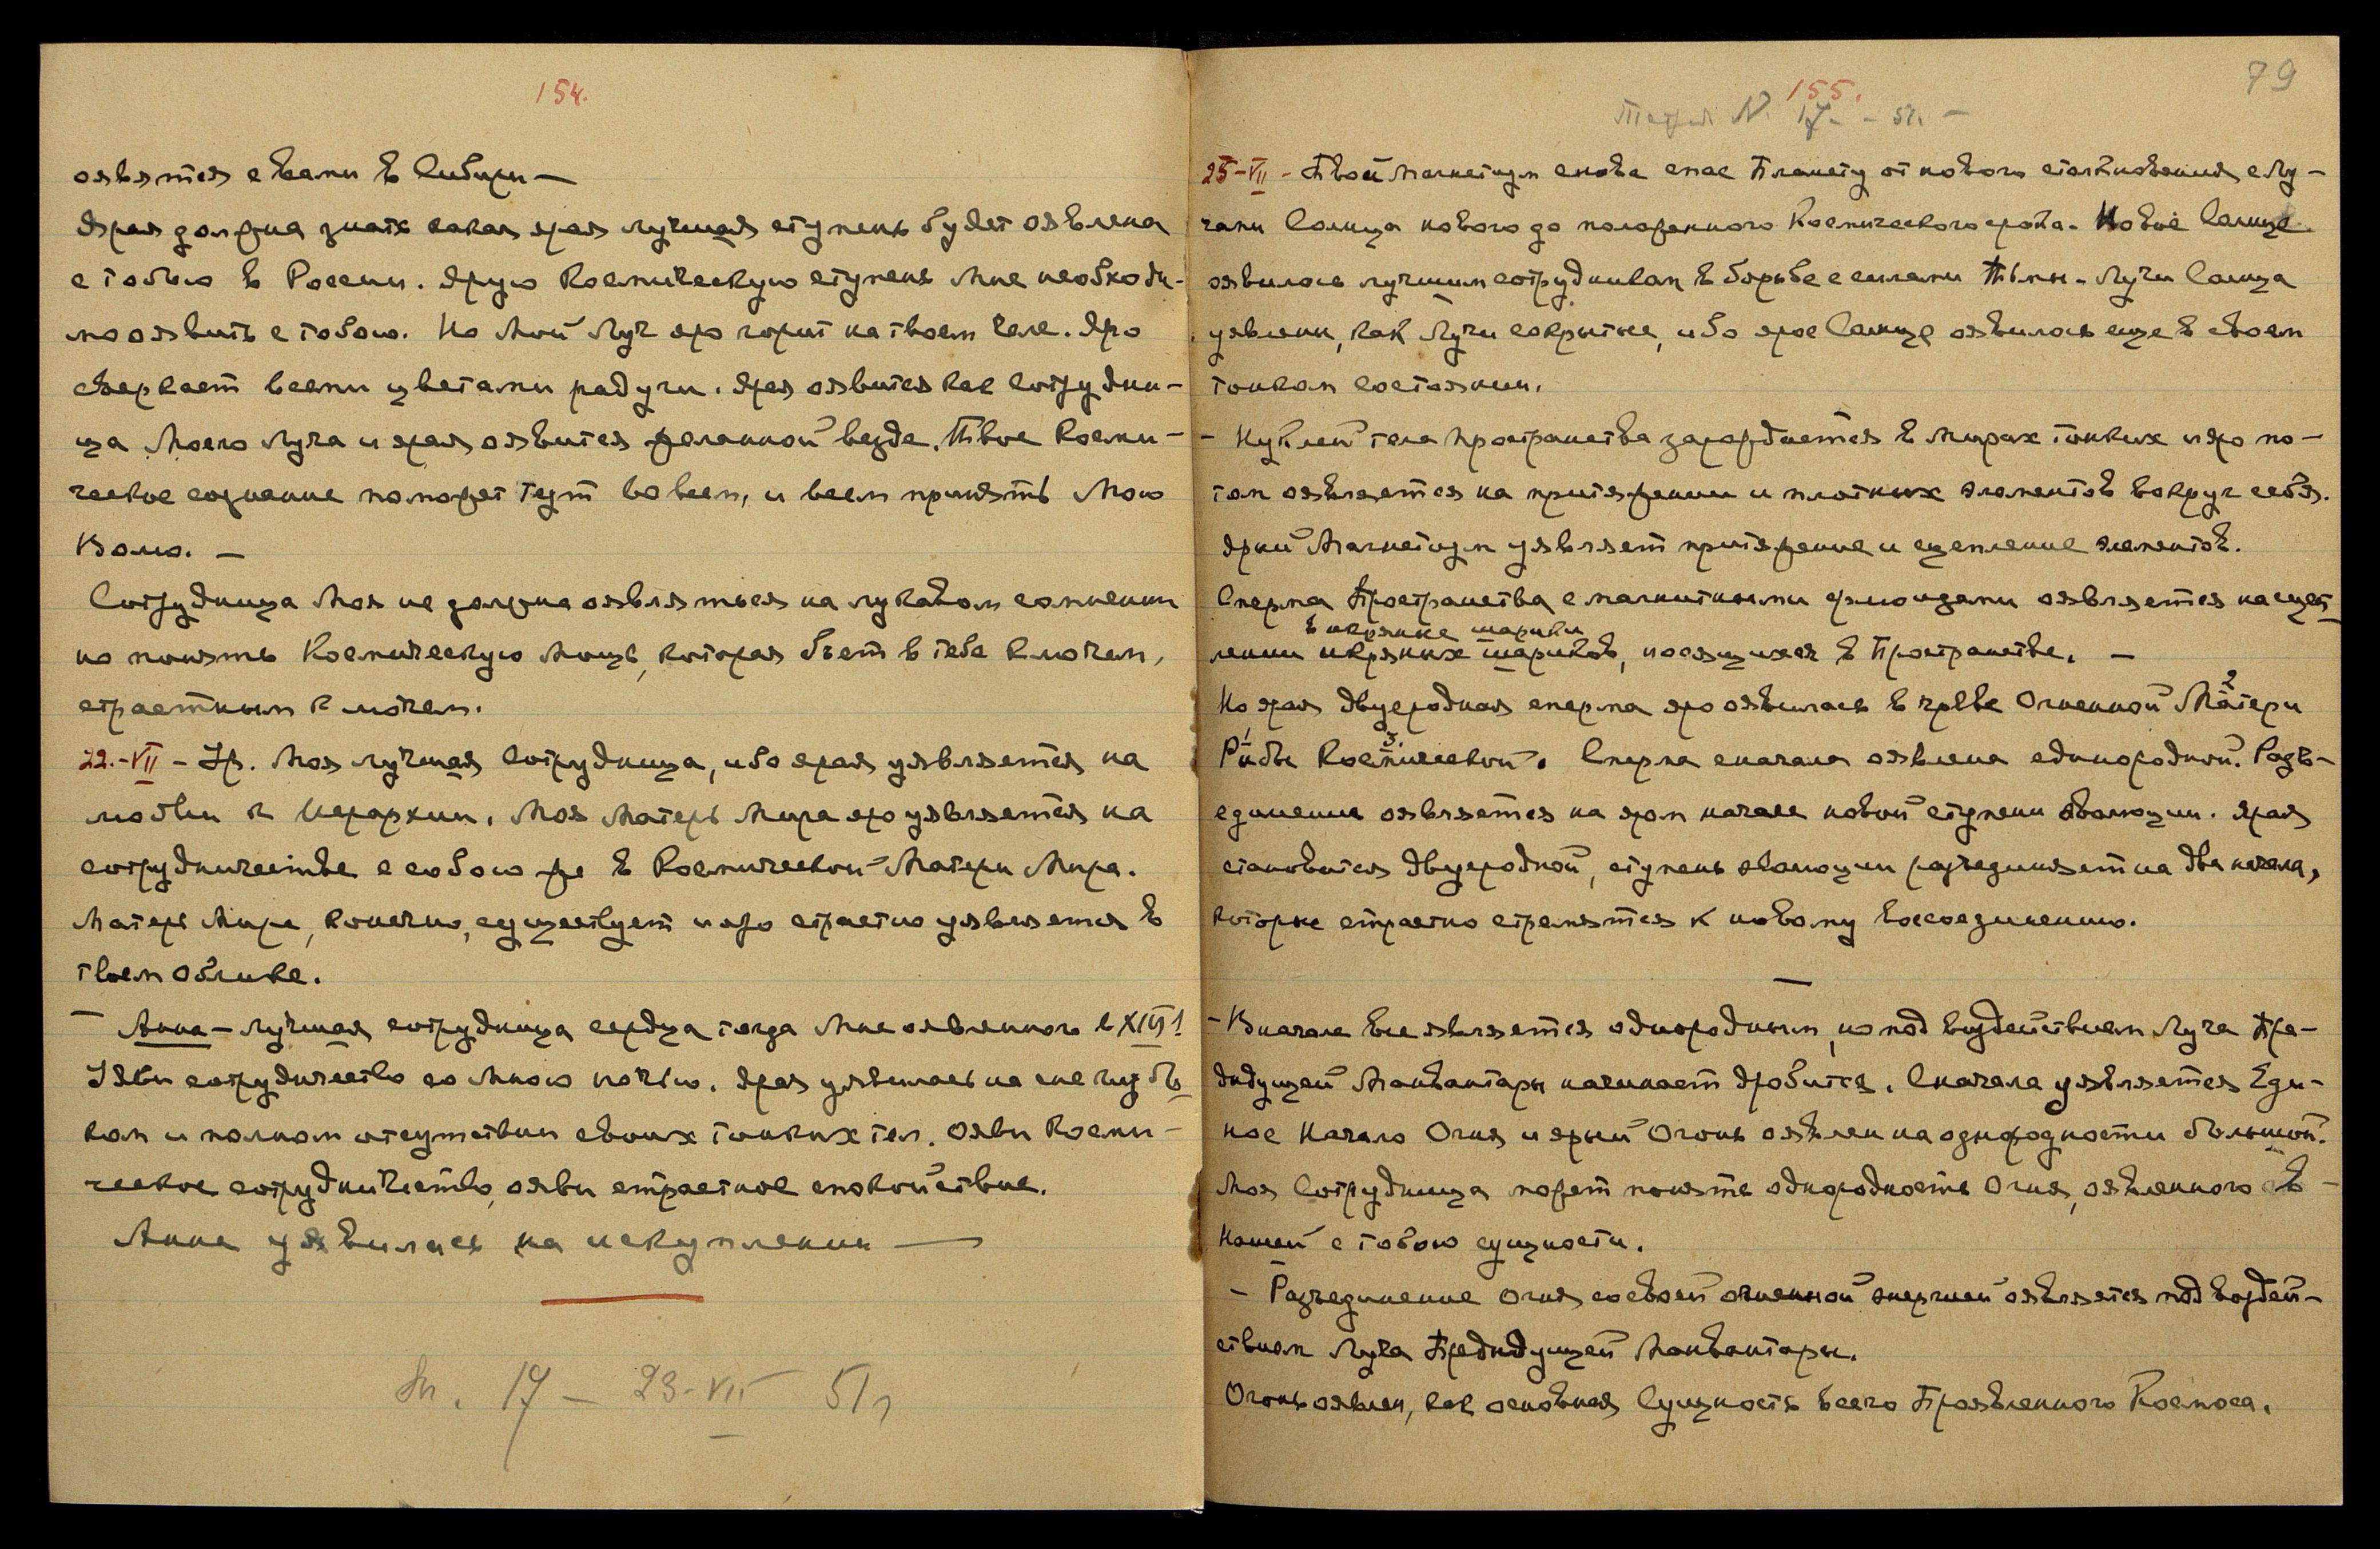 154.
оявятся с вами в Сибири —
Ярая должна знать какая ярая лучшая ступень будет оявлена
с тобою в России. Ярую Космическую ступень Мне необходи-
мо оявить с тобою. Но Мой Луч яро горит на твоем Челе. Яро
сверкает всеми цветами радуги. Ярая оявится как Сотрудни-
ца Моего Луча и ярая оявится желанной везде. Твое Косми-
ческое сознание поможет тут во всем, и всем принять Мою
Волю. —
Сотрудница Моя не должна оявляться на лукавом сомнении
но понять Космическую Мощь, которая бьет в тебе ключем,
страстным ключем.
22.-VII - Ур. Моя лучшая Сотрудница, ибо ярая уявляется на
любви к Иерархии. Моя Матерь Мира яро уявляется на
сотрудничестве с собою же в Космической Матери Мира.
Матерь Мира, конечно, существует и яро страстно уявляется в
твоем облике.
— Анна — лучшая сотрудница сердца тогда Мне оявленного в
Уяви сотрудничество со Мною ночью. Ярая уявилась на сне глубо
ком и полном отсутствии своих тонких тел. Ояви Косми-
ческое сотрудничество, ояви страстное спокойствие.
Анна уявилась на искуплении —
17 — 23-VII 51г
79
155.
Тетрадь N. 17 - - 51. —
25-VII - Твой Магнетизм снова спас Планету от нового столкновения с Лу-
чами Солнца нового до положенного Космического срока. Новое Солнце
оявилось лучшим сотрудником в борьбе с силами Тьмы. Лучи Солнца
уявлены, как Лучи сокрытые, ибо ярое Солнце оявилось еще в своем
тонком состоянии.
- Нуклей тела Пространства зарождается в Мирах тонких и яро по-
том оявляется на притяжении и плотных элементов вокруг себя.
Ярый Магнетизм уявляет притяжение и сцепление элементов.
Сперма Пространства с магнитными флюидами оявляется на сцеп
в икряные шарики
лении икряных шариков, носящихся в Пространстве. —
2
Но ярая двуеродная сперма яро оявилась в чреве Огненной Матери
1 3.
Рыбы Космической. Сперма сначала оявлена единородной. Разъ-
единение оявляется на яром начале новой ступени эволюции. Ярая
становится двуеродной, ступень эволюции разъединяет на два начала,
которые страстно стремятся к новому воссоединению.
—
- Вначале все является однородным, но под воздействием Луча Пре-
дыдущей Манвантары начинает дробится. Сначала уявляется Еди-
ное Начало Огня и ярый Огонь оявлен на однородности большой.
Моя Сотрудница может понять однородность Огня, оявленного в
нашей с тобою сущности.
- Разъединение Огня со своей огненной энергией оявляется под воздей-
ствием Луча Предыдущей Манвантары.
Огонь оявлен, как основная Сущность всего Проявленного Космоса.